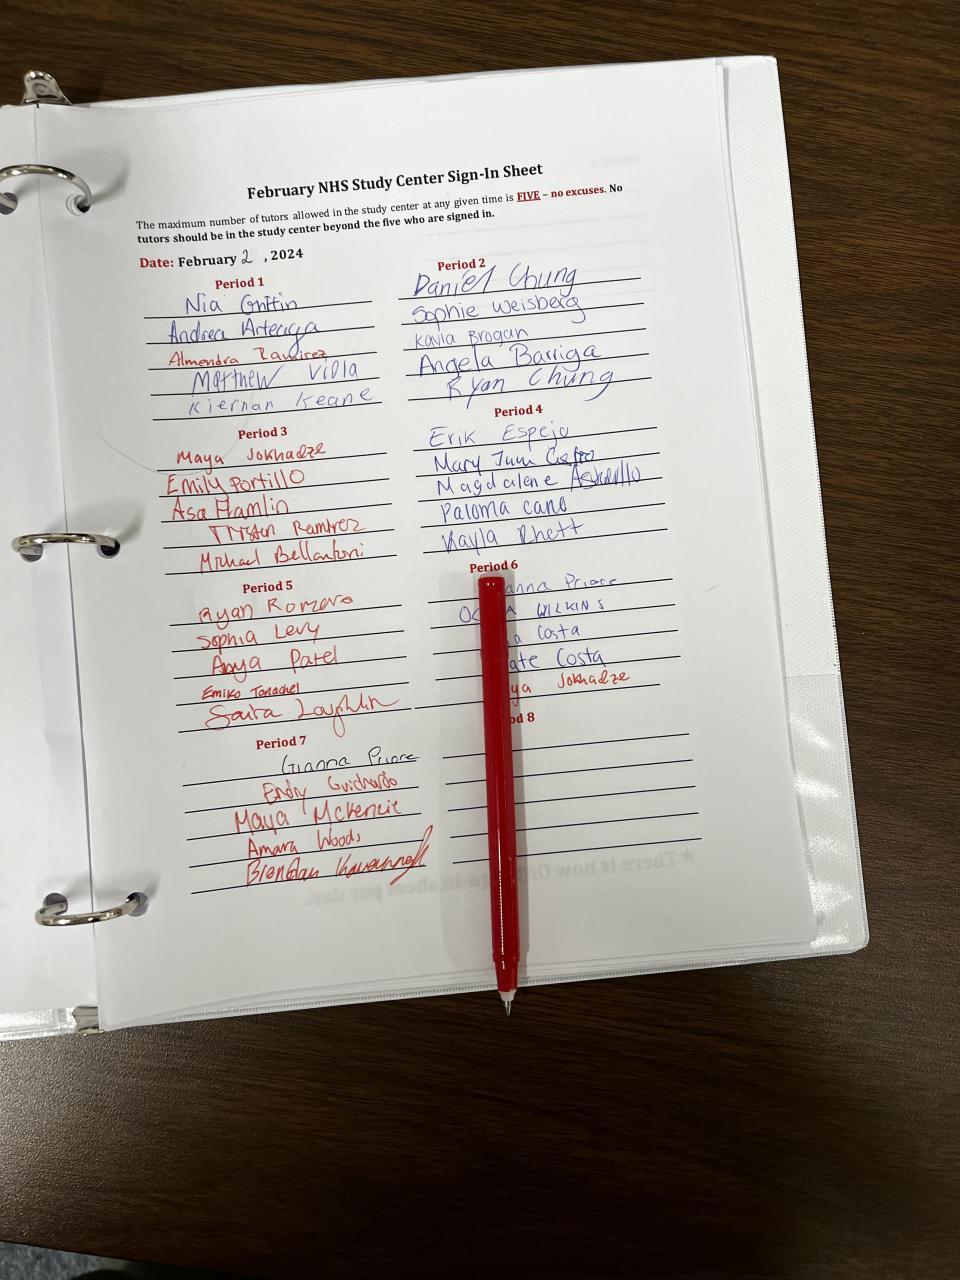 February NHS Study Center Sign-In Sheet
The maximum number of tutors allowed in the study center at any given time is FIVE – no excuses. No
tutors should be in the study center beyond the five who are signed in.
Date: February 2 , 2024
Period 1
Nia Griffin
Andrea Arteaga
Almendra Ramirez
Matthew Viola
Kiernan Keane
Period 2
Daniel Chung
Sophie Weisberg
Kayla Brogan
Angela Barriga
Ryan Chung
Period 3
Maya Jokhadze
Emily Portillo
Asa Hamlin
Ramirez
Michael Bellantoni
Period 4
Erik Espejo
Mary
Magdalene
Paloma Cano
Kayla Rhett
Period 5
Ryan Romero
Sophia Levy
Anya Patel
Emiko
Loughlin
Period 6
anna Priore
WILKINS
a Costa
ate Costa
ya Jokhadze
Period 7
Gianna Priore
Guichardo
Maya McKenzie
Amara Woods
Brendan
od 8
★There is now
sign-in sheet per day.